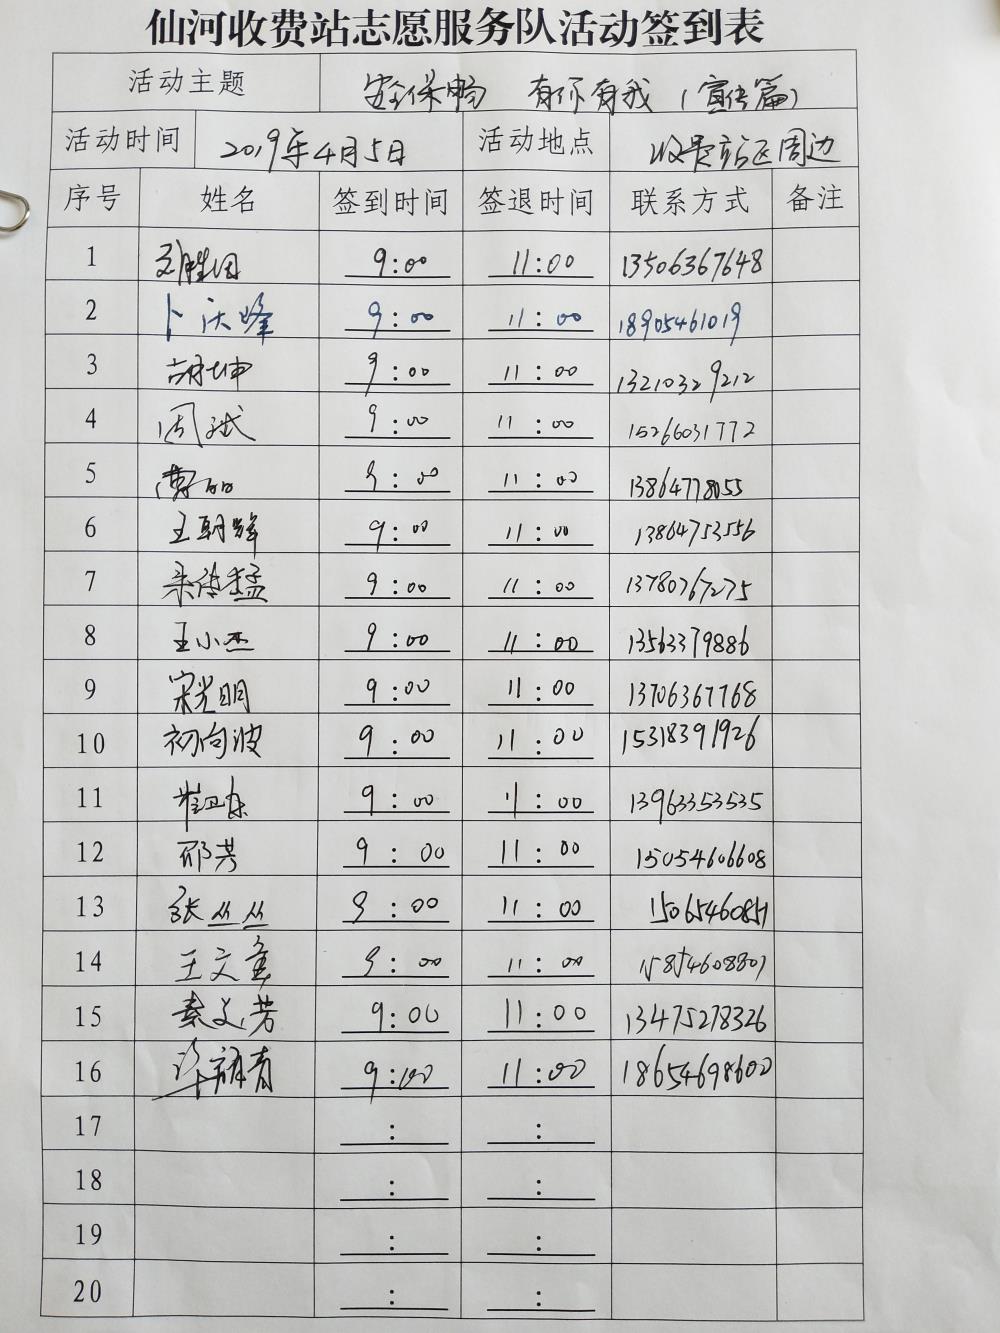 仙河收费站志愿服务队活动签到表
活动主题 安全保畅 有你有我（宣传篇）
活动时间 2019年4月5日 活动地点 收费站区周边
序号 姓名 签到时间 签退时间 联系方式 备注
1 刘胜田 9:00 11:00 13506367648
2 卜庆峰 9:00 11:00 18905461019
3 胡坤 9:00 11:00 13210329212
4 周斌 9:00 11:00 15266031772
5 9:00 11:00 13864778055
6 王朝辉 9:00 11:00 13864753556
7 9:00 11:00 13780767275
8 王小杰 9:00 11:00 13563379886
9 宋光明 9:00 11:00 13706367768
10 初向波 9:00 11:00 15318391926
11 崔卫东 9:00 11:00 13963353535
12 邢芳 9:00 11:00 15054606608
13 张丛丛 9:00 11:00 15065460851
14 王文奎 9:00 11:00 15854608807
15 秦文芳 9:00 11:00 13475278326
16 9:00 11:00 18654698600
17 : :
18 : :
19 : :
20 : :